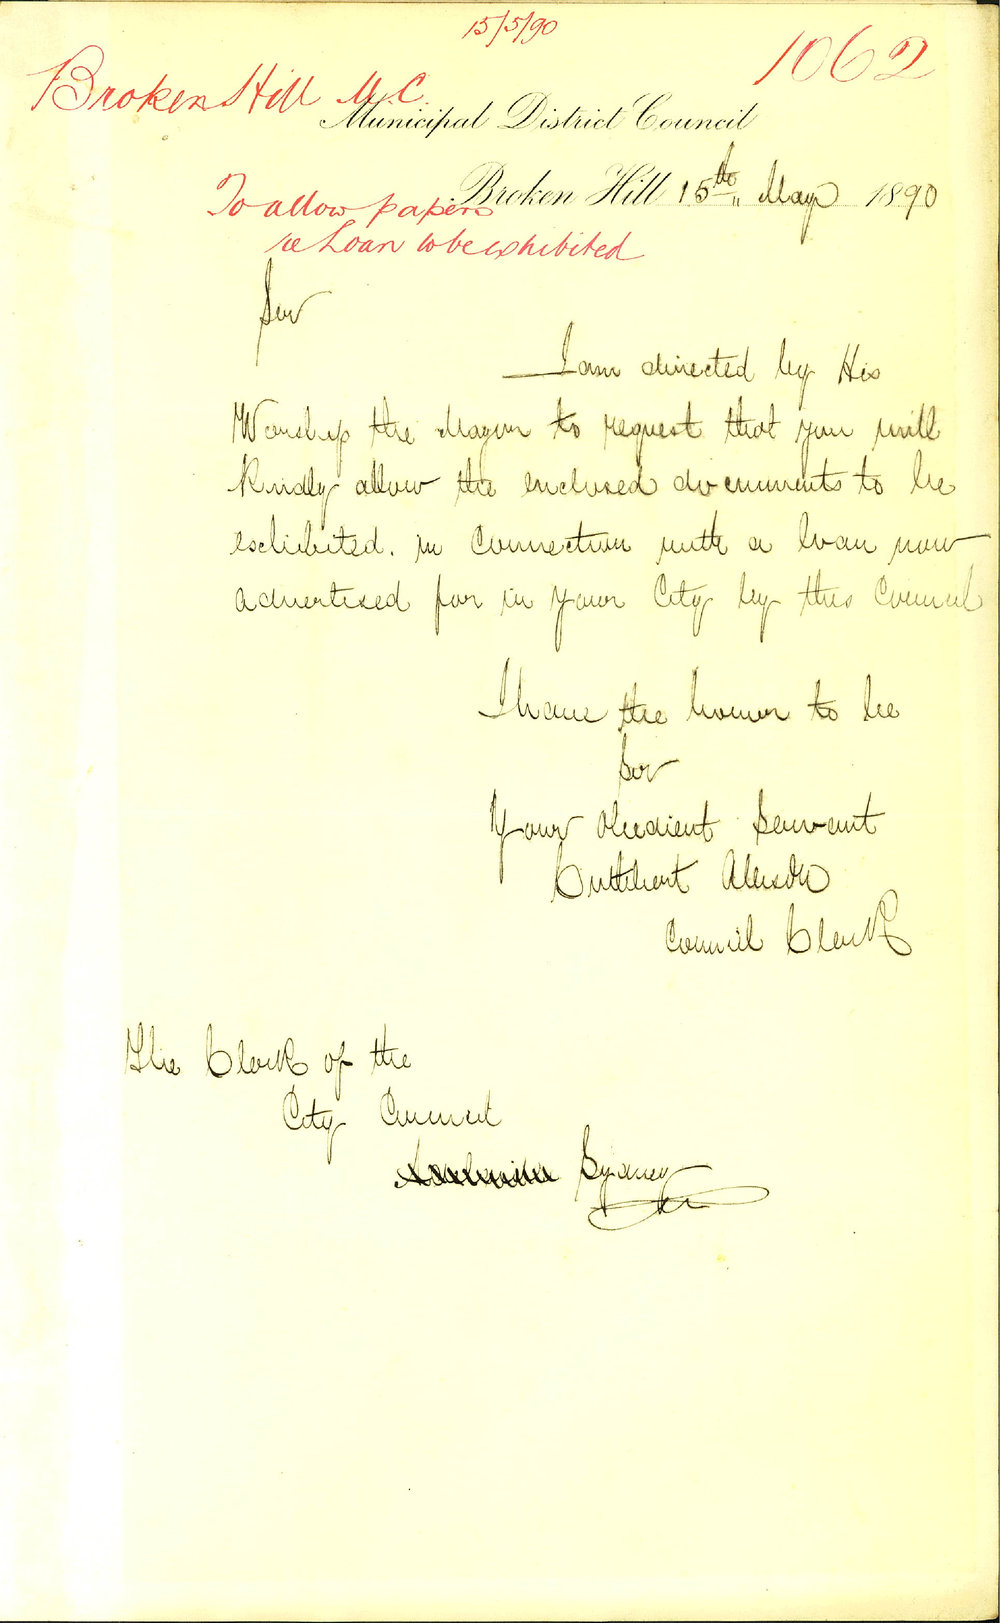 15/5/90
1062
Broken Hill M. C.
Municipal District Council
Broken Hill 15th May 1890
To allow papers
re Loan to be exhibited
Sir
I am directed by His
Worship the Mayor to request that you will
kindly allow the enclosed documents to be
exhibited. in connection with a loan now
advertised for in your City by this Council
I have the honor to be
Sir
Your obedient Servant
Cuthbert Allison
Council Clerk
The Clerk of the
City Council
Sydney